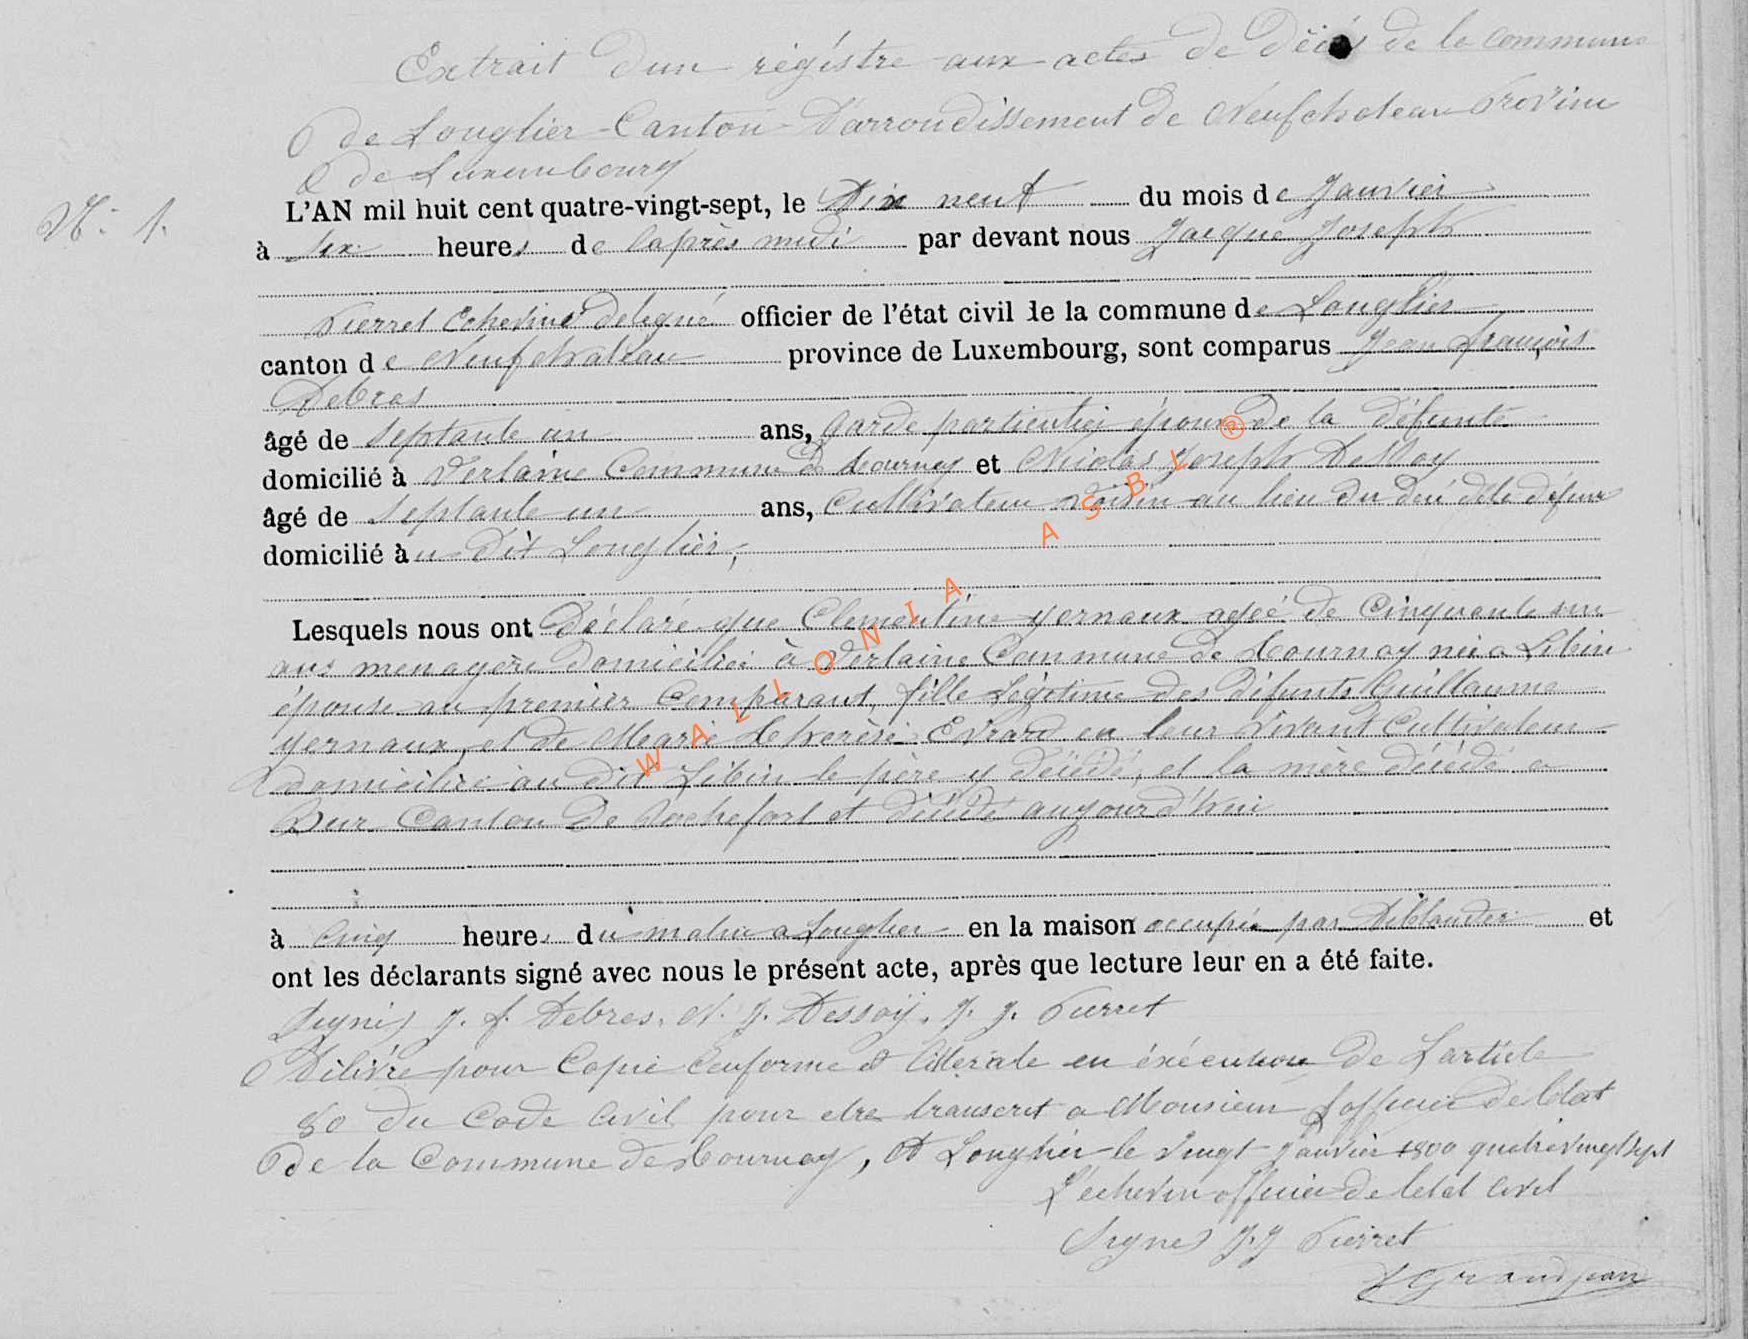 Extrait d'un régistre aux actes de Décés de la commune
de Longlier Canton D'arrondissement de Neufchateau Province
de Luxembourg
N: 1.
L'AN mil huit cent quatre-vingt-sept, le Dix neuf du mois de Janvier
à six heures de laprès midi par devant nous Jacque Joseph
Pierret Echevins délegué officier de l'état civil de la commune de Longlier
canton de Neufchateau province de Luxembourg, sont comparus Jean françois
Debras
âgé de septante un ans, garde particulier époux de la défunte
domicilié à Verlaine Commune de Tournay et Nicolas Joseph Dessoy
âgé de septante un ans, Cultivateur voisin au lieu du décé de la défunte
domicilié au dit Longlier,
Lesquels nous ont Déclaré que Clementine yernaux agée de Cinquante un
ans menagère domiciliée à Verlaine Commune de Tournay née a Libin
épouse au premier Comparant, fille Légitime des défunts Guillaume
yernaux, et de Marie Therèse Evrard en leur vivant Cultivateur
domicilié au dit Libin le père y décédé, et la mère décédé a
Bur Canton de Rochefort et décédé aujourd'hui
à Cinq heures du matin a Longlier en la maison occupée par et
ont les déclarants signé avec nous le présent acte, après que lecture leur en a été faite.
Signés J. f. Debras. N. J. Dessoÿ. J. J. Pierret
Délivré pour Copie Conforme et litterale en éxécution de Larticle
80 du Code Civil pour etre transcrit a Monsieur Lofficier de l'état
de la Commune de Tournay, A Longlier le vingt Janvier 1800 quatrevingt sept
L'echevin officier de l'état civil
Signé J.J Pierret
Grandjean
WALLONIA ASBL ®